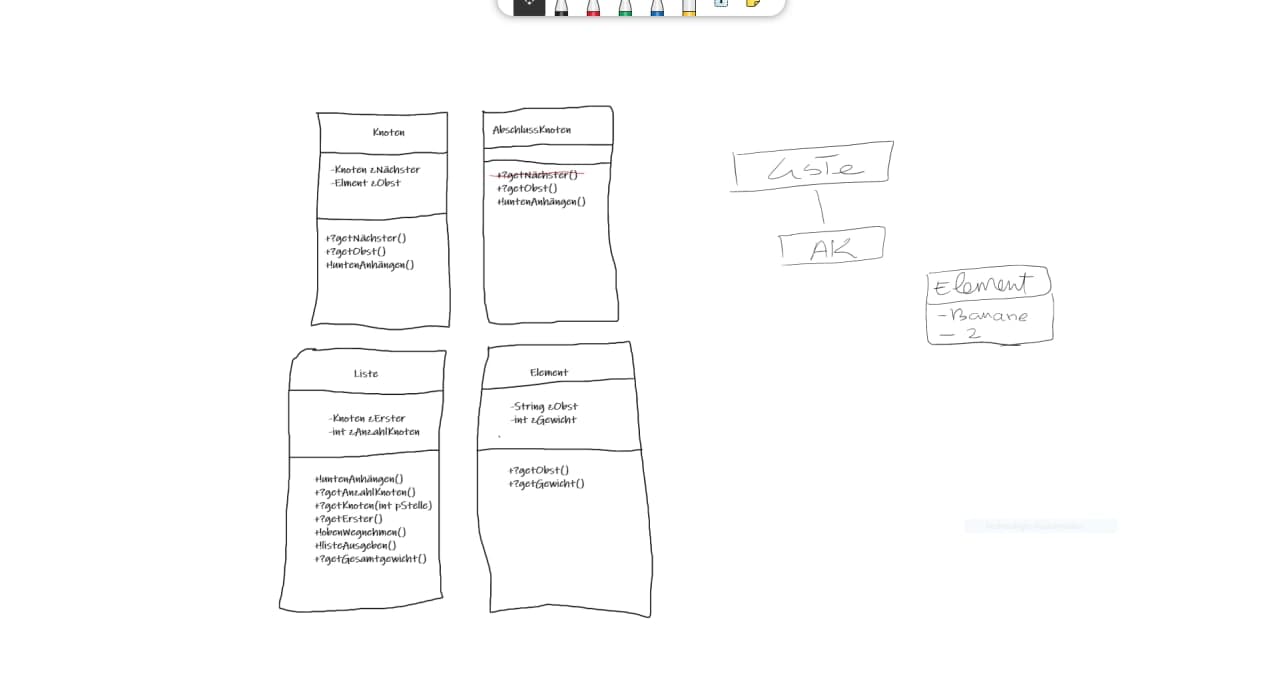 Knoten
-Knoten zNächster
-Elment zObst
+?getNächster()
+?getObst()
+!untenAnhängen()
AbschlussKnoten
+?getNächster()
+?getObst()
+!untenAnhängen()
Liste
-Knoten zErster
-int zAnzahlKnoten
+!untenAnhängen()
+?getAnzahlKnoten()
+?getKnoten(int pStelle)
+?getErster()
+!obenWegnehmen()
+!listeAusgeben()
+?getGesamtgewicht()
Element
-String zObst
-int zGewicht
+?getObst()
+?getGewicht()
Liste
AK
Element
-Banane
- 2